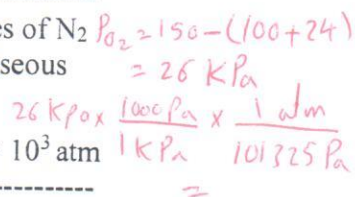 es of N2 P_O2 = 150-(100+24)
seous = 26 KPa
26 KPa x 1000 Pa / 1 KPa x 1 atm / 101325 Pa
10³ atm
=
----------